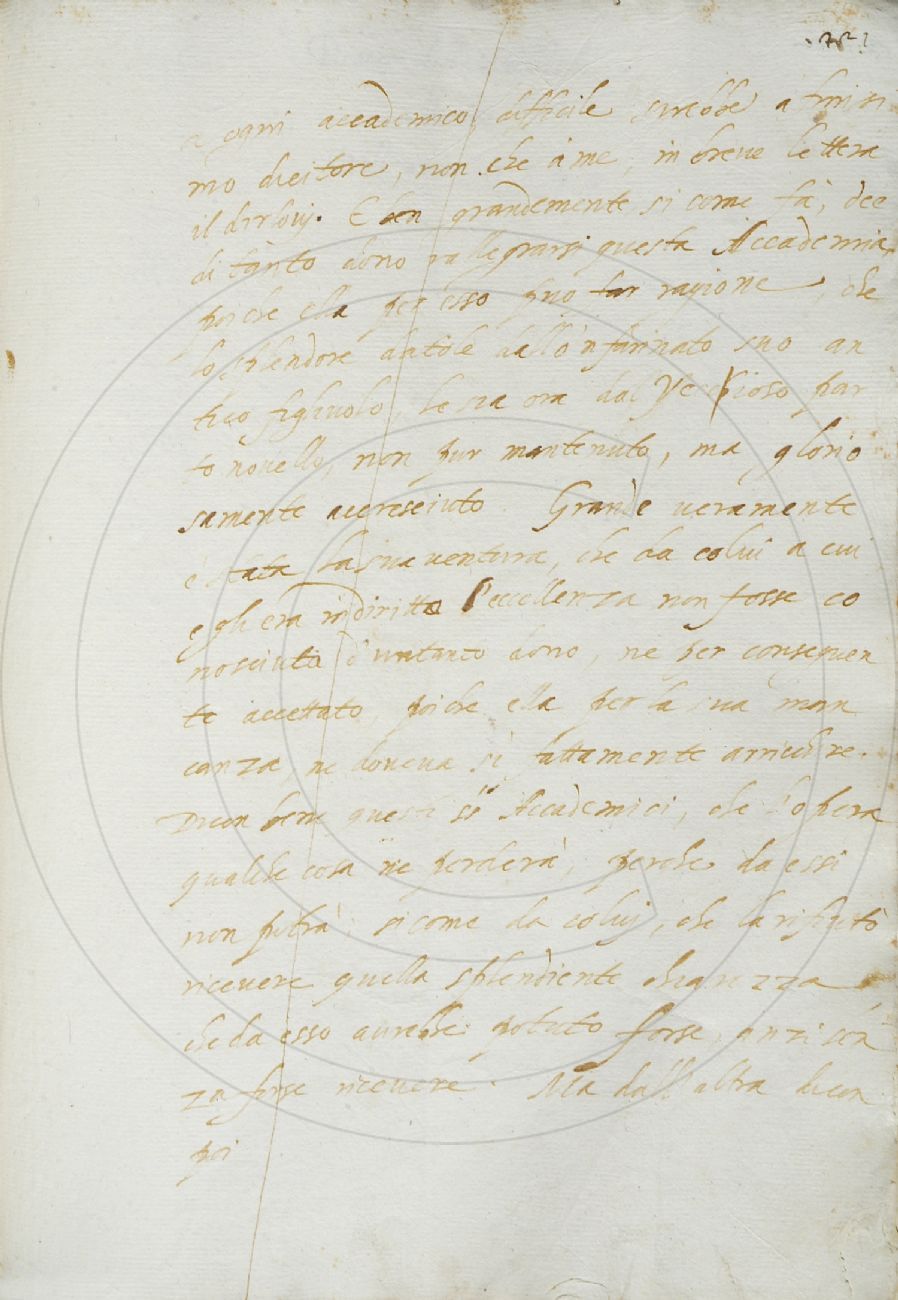 a ogni accademico, difficile sarebbe a finissi
mo dicitore, non che à me, in breue lettera
il dirloui. E ben grandemente si come fà, dee
di tanto dono rallegrarsi questa Accademia,
poiche ella per esso può far ragione, che
lo splendore datole dall'o'nfarinato suo an
tico figliuolo, le sia ora dal par
to nouello, non pur mantenuto, ma glorio
samente accresciuto. Grande ueramente
è stata la sua ventura, che da colui a cui
egli era indiritto l'eccellenza non fosse co
nosciuta d'untanto dono, ne per conseguen
te accettato, poiche ella per la sua man
canza, ne doueua sì fattamente arricchire.
Dicon bene questi Accademici, che l'opera
qualche cosa ne perderà, perche da essi
non potrà, sicome da coluj, che la rifiutò
riceuere quella splendiente chiarezza
che da esso aurebbe potuto forse, anzi sen
za forse riceuere. Ma dall'altra dicon
poi